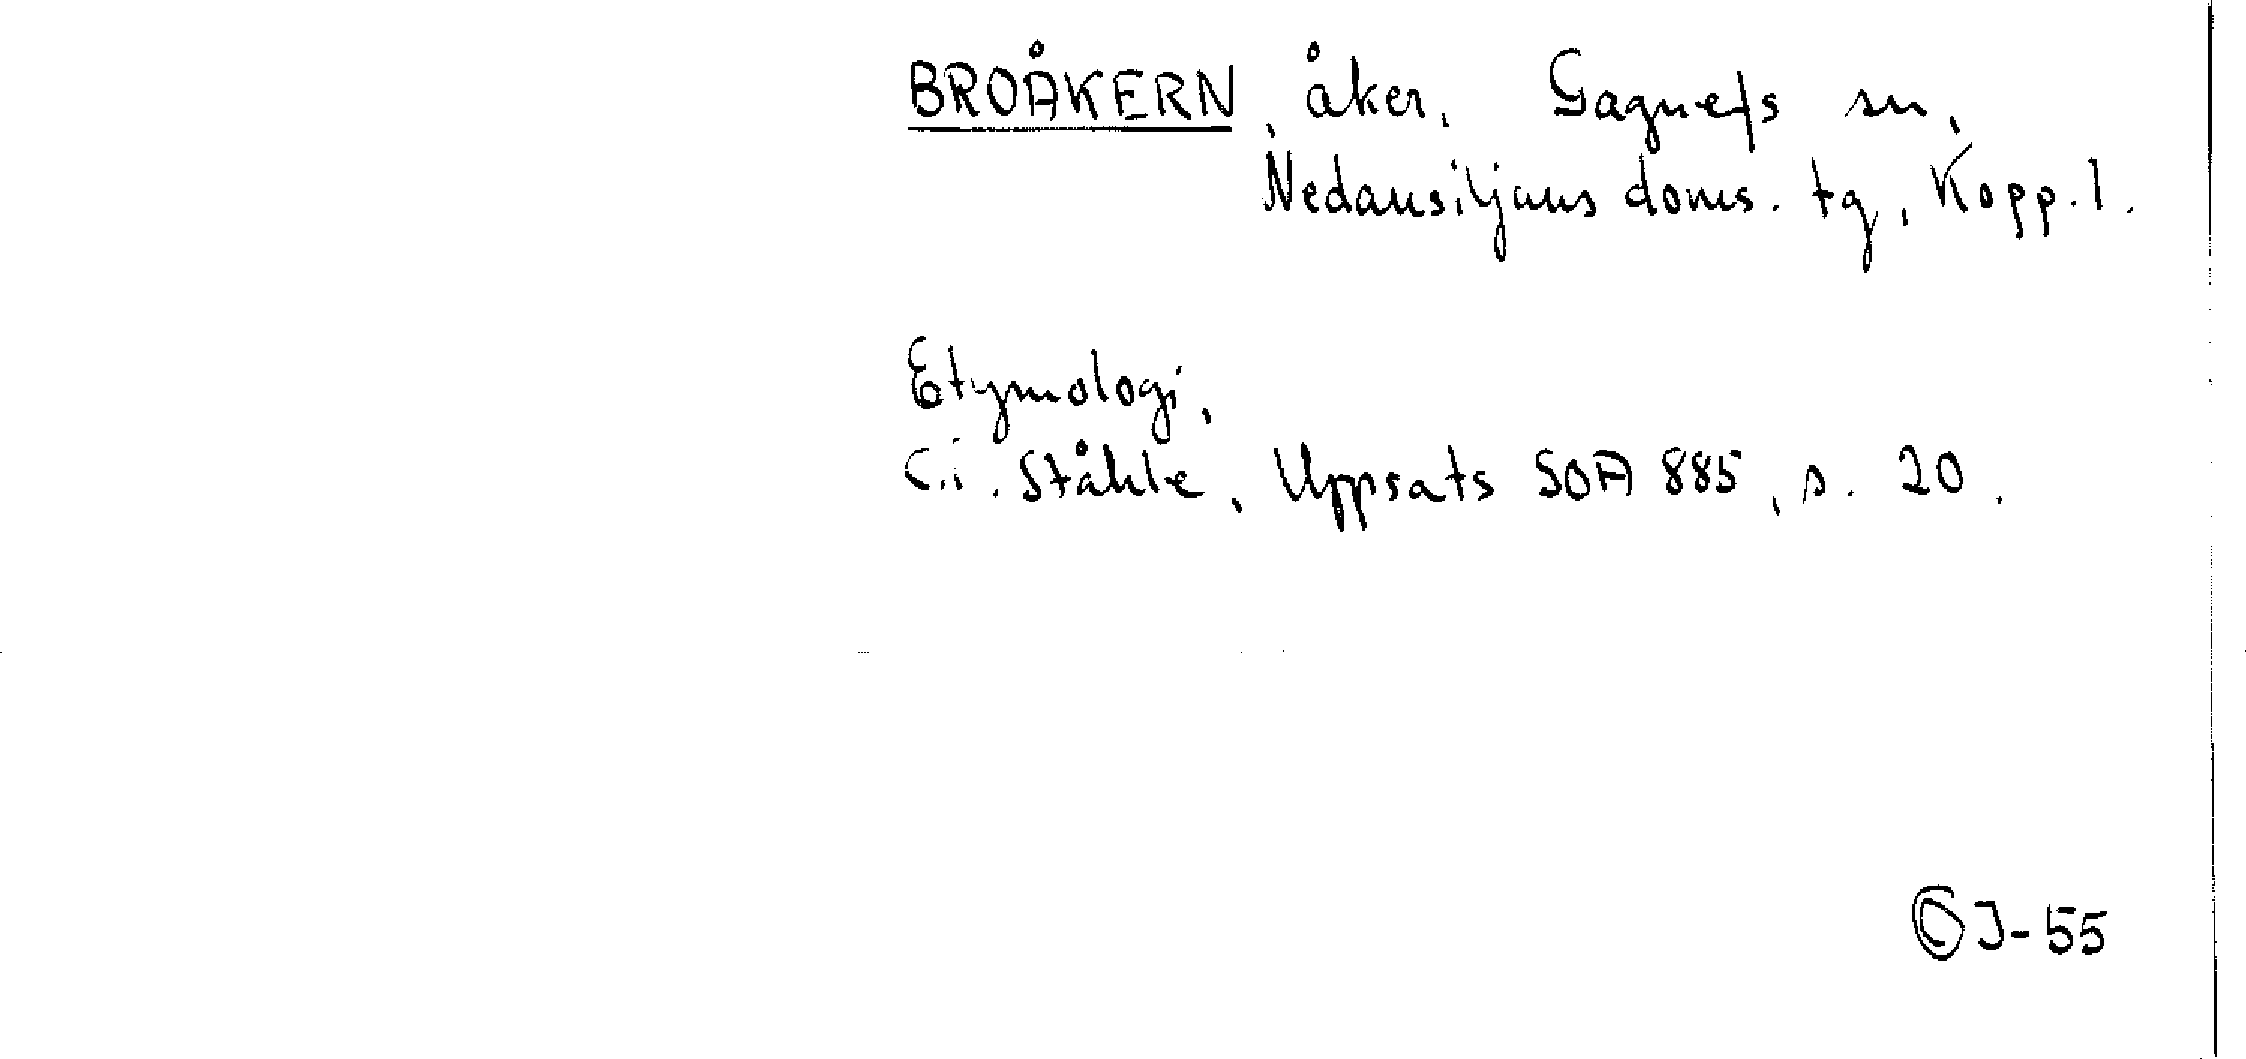 BROÅKERN, åker, Gagnefs sn,
Nedansiljans doms. tg, Kopp. l.
Etymologi,
C.i. Ståhle, Uppsats SOA 885, s. 20.
J-55